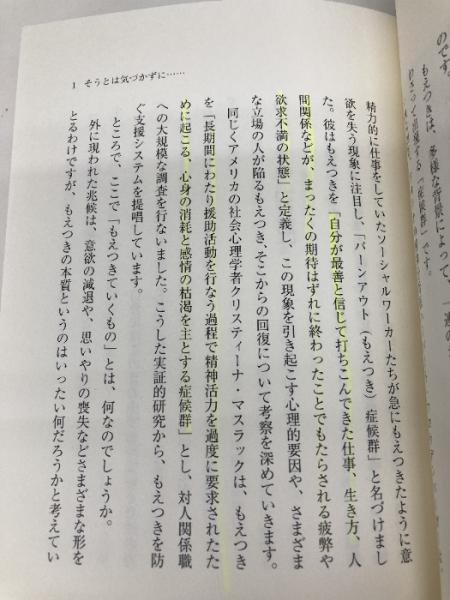 のです。
もえつきは、多様な背景によって、
「症候群」です。
1 そうとは気づかずに……
精力的に仕事をしていたソーシャルワーカーたちが急にもえつきたように意
欲を失う現象に注目し、「バーンアウト（もえつき）症候群」と名づけまし
た。彼はもえつきを「自分が最善と信じて打ちこんできた仕事、生き方、人
間関係などが、まったくの期待はずれに終わったことでもたらされる疲弊や
欲求不満の状態」と定義し、この現象を引き起こす心理的要因や、さまざま
な立場の人が陥るもえつき、そこからの回復について考察を深めていきます。
同じくアメリカの社会心理学者クリスティーナ・マスラックは、もえつき
を「長期間にわたり援助活動を行なう過程で精神活力を過度に要求されたた
めに起こる、心身の消耗と感情の枯渇を主とする症候群」とし、対人関係職
への大規模な調査を行ないました。こうした実証的研究から、もえつきを防
ぐ支援システムを提唱しています。
ところで、ここで「もえつきていくもの」とは、何なのでしょうか。
外に現われた兆候は、意欲の減退や、思いやりの喪失などさまざまな形を
とるわけですが、もえつきの本質というのはいったい何だろうかと考えてい